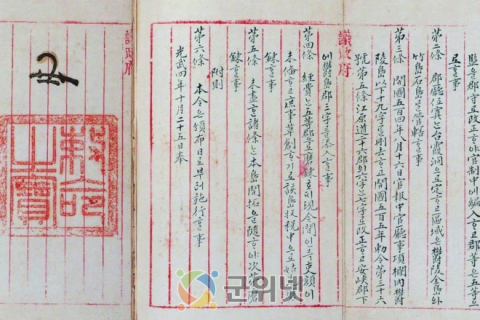 島監을郡守로改正ᄒᆞ야官制中에編入ᄒᆞ고郡等은五等으
로ᄒᆞᆯ事
第二條 郡廳位寘ᄂᆞᆫ台霞洞으로定ᄒᆞ고區域은鬱陵全島와
竹島石島를管轄ᄒᆞᆯ事
第三條 開國五百四年八月十六日官報中官廳事項欄內鬱
陵島以下十九字를刪去ᄒᆞ고開國五百五年勅令第三十六
號第五條江原道二十六郡의六字ᄂᆞᆫ七字로改正ᄒᆞ고安峽郡下
에鬱島郡三字를添入ᄒᆞᆯ事
第四條 經費ᄂᆞᆫ五等郡으로磨鍊호되現今間인즉吏額이
未備ᄒᆞ고庶事草創ᄒᆞ기로該島收稅中으로姑先磨
鍊ᄒᆞᆯ事
第五條 未盡ᄒᆞᆫ諸條ᄂᆞᆫ本島開拓을隨ᄒᆞ야次第磨
鍊ᄒᆞᆯ事
附則
第六條 本令은頒布日로부터施行ᄒᆞᆯ事
光武四年十月二十五日奉
議政府
議政府
군위넷